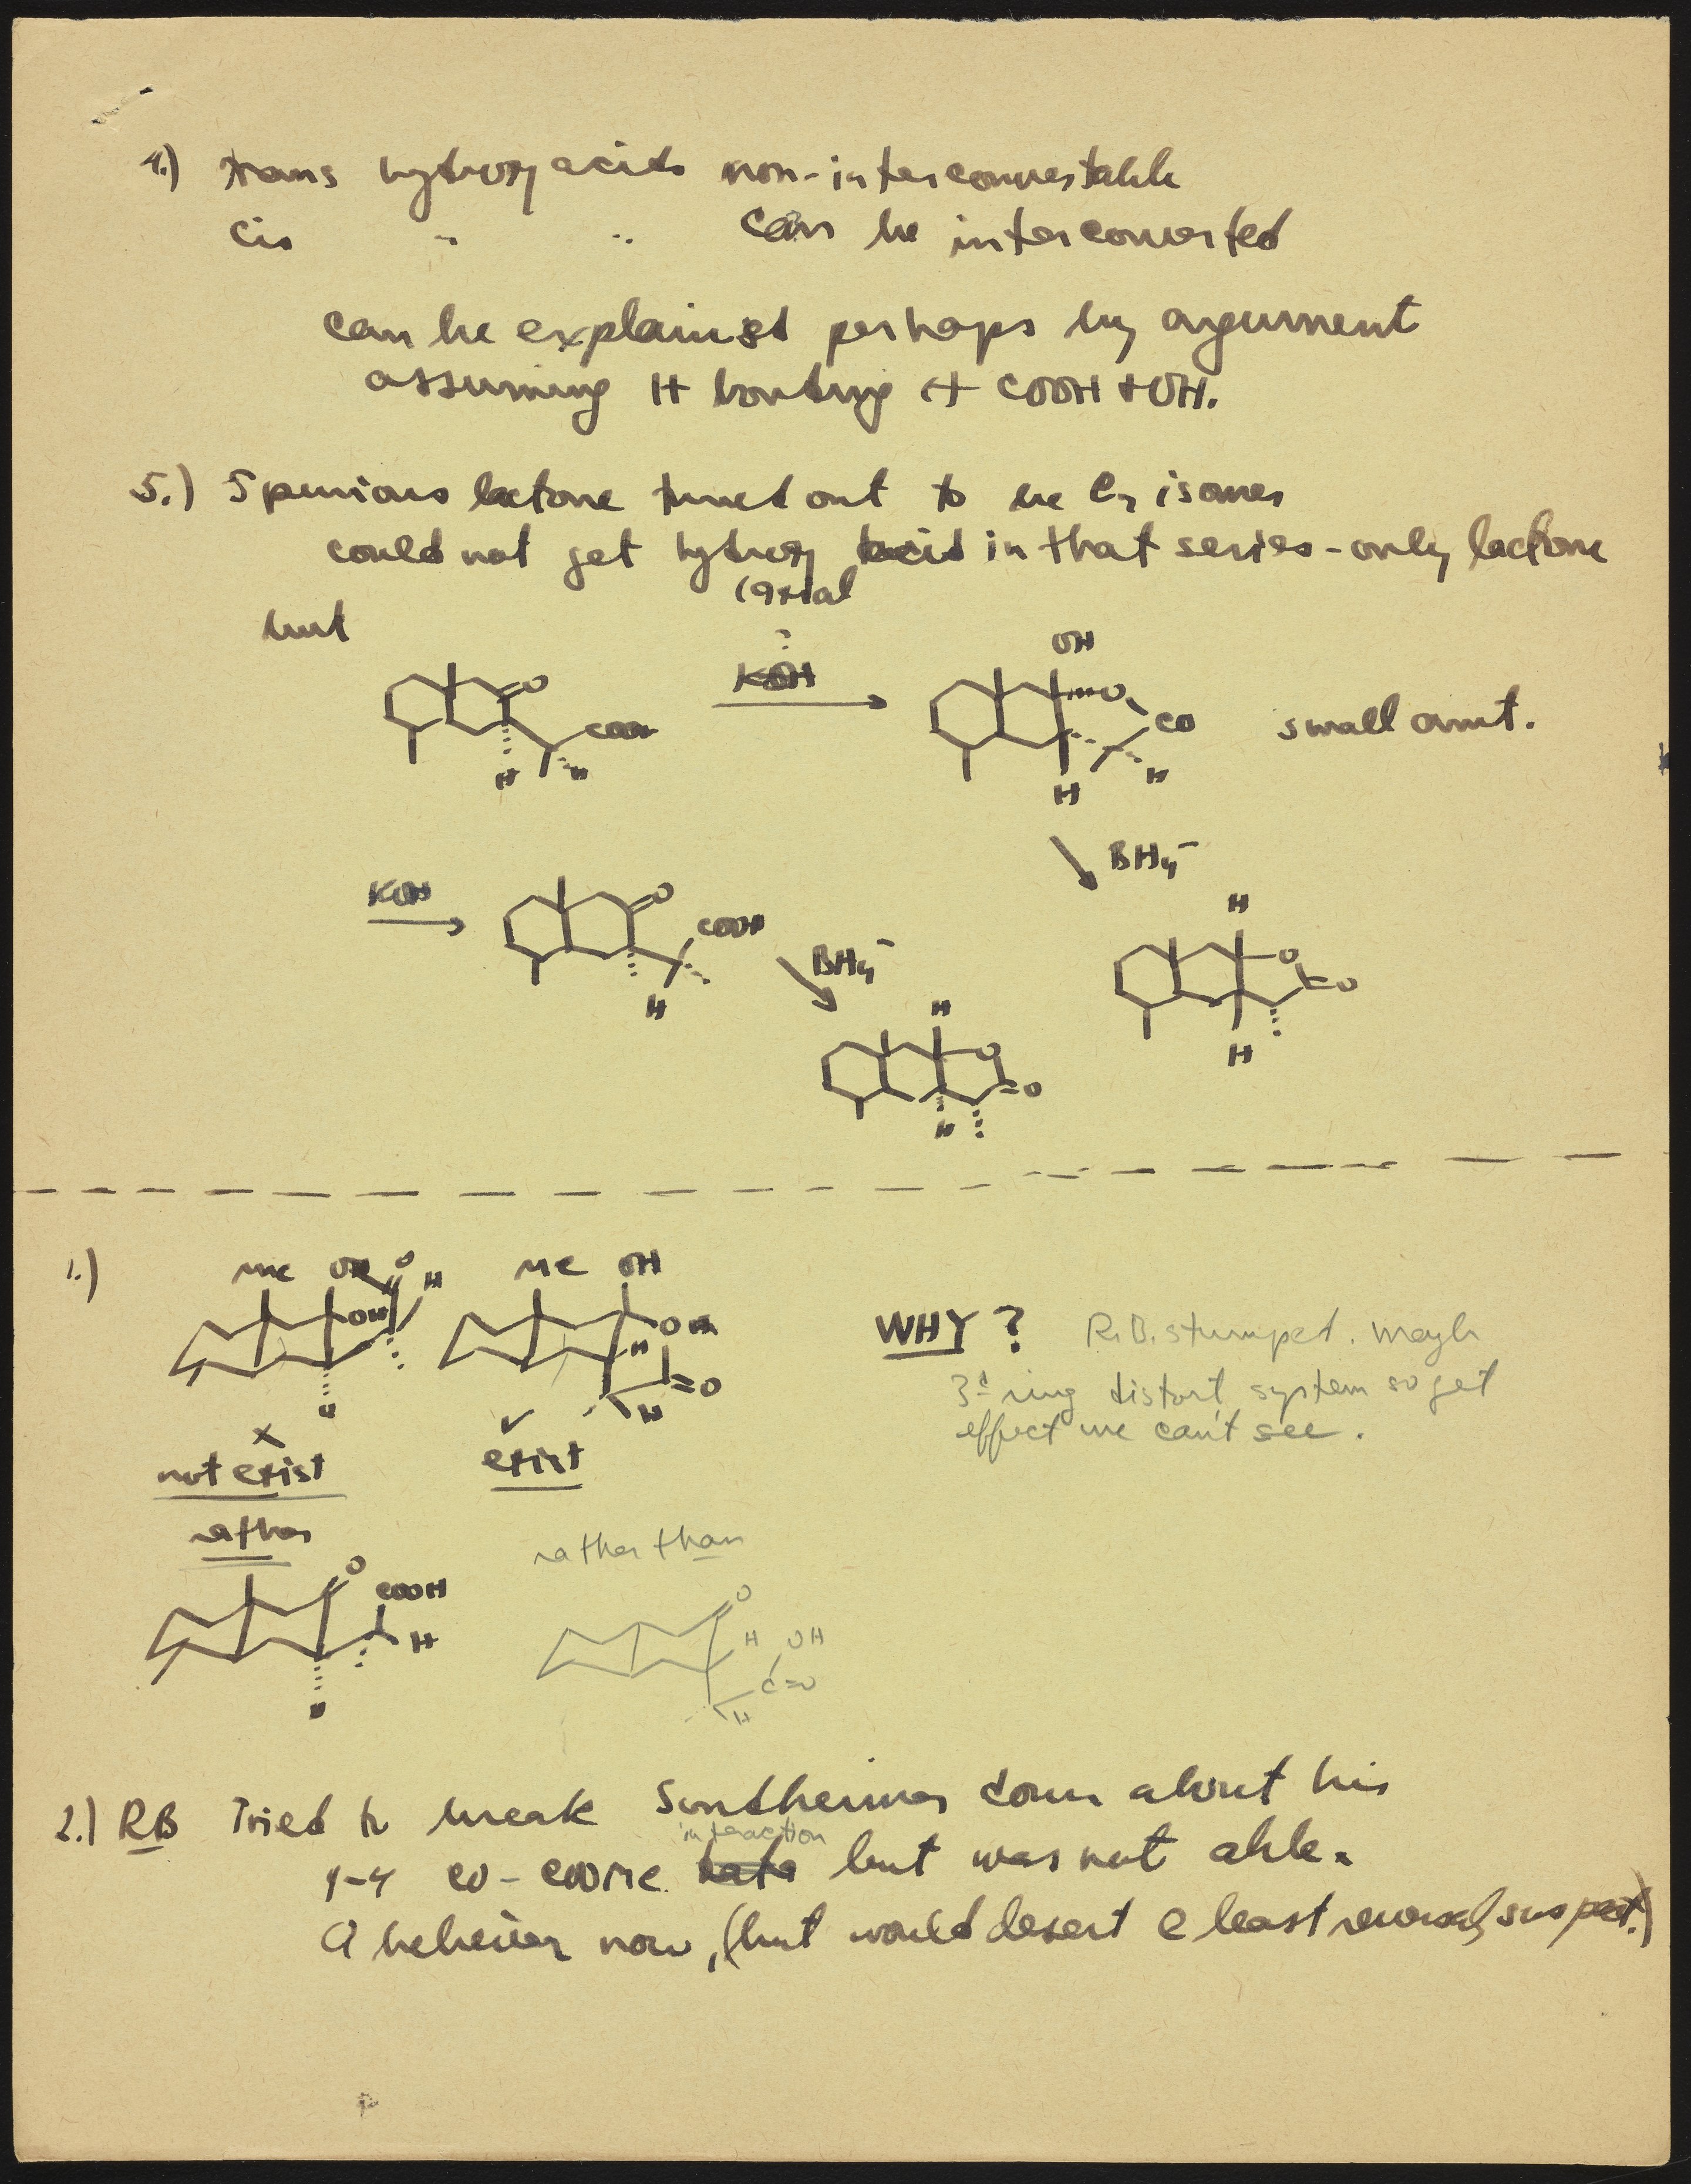 4.) trans hydroxy acids non-interconvertable
cis " " can be interconverted
can be explained perhaps by argument
assuming H bonding COOH + OH.
5.) Spurious lactone turned out to be C, isomer
could not get hydroxy acid in that series - only lactone
(axial
but
O
COOH
H
H
?
KOH
OH
O
CO
H
H
small amt.
BH4-
KOH
O
COOH
H
BH4-
H
O
O
H
H
O
O
H
1.)
Me OH O H
OH
H
Me OH
OH
H
O
H
WHY? R.B. stumped. Maybe
3rd ring distort system so get
effect we can't see.
X
not exist
✓
exist
rather
rather than
O
COOH
H
H
O
H OH
C=O
H
2.) RB Tried to break Sondheimer down about his
interaction
1-4 CO - COOMe data but was not able.
A believer now, (but would desert @ least reversal, suspect.)